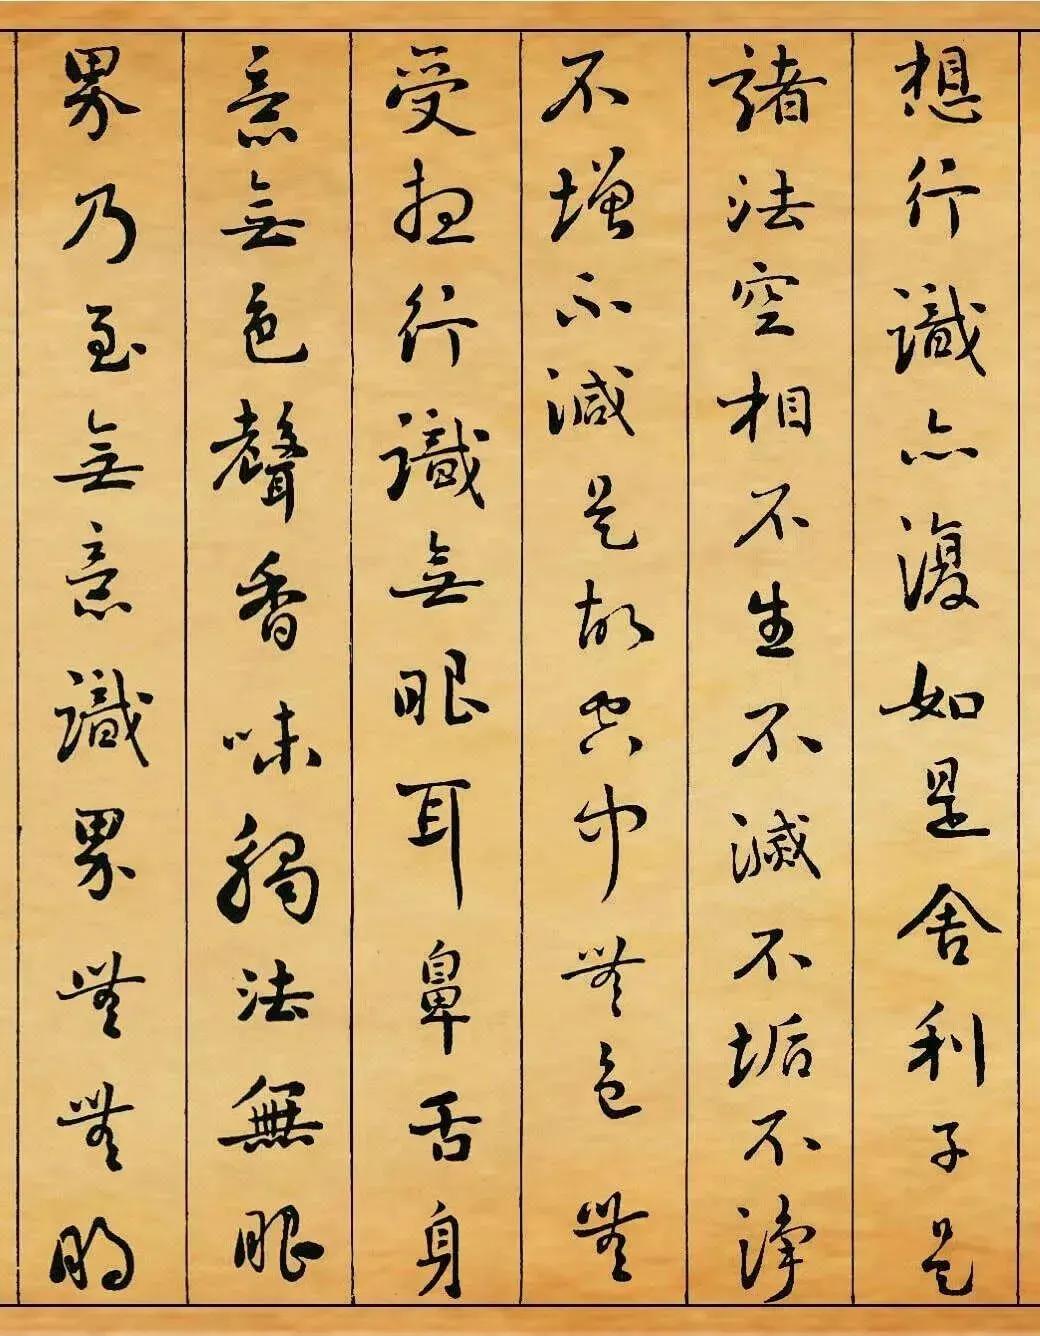 想行識亦復如是舍利子是
諸法空相不生不滅不垢不淨
不增不減是故空中無色無
受想行識無眼耳鼻舌身
意無色聲香味觸法無眼
界乃至無意識界無無明